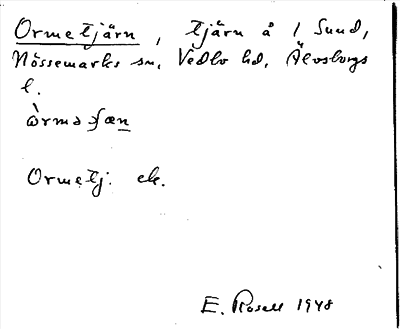 Ormetjärn, tjärn å 1 Sund,
Nössemarks sn, Vedbo hd, Älvsborgs
l.
Ormetj. ek.
E. Rosell 1948